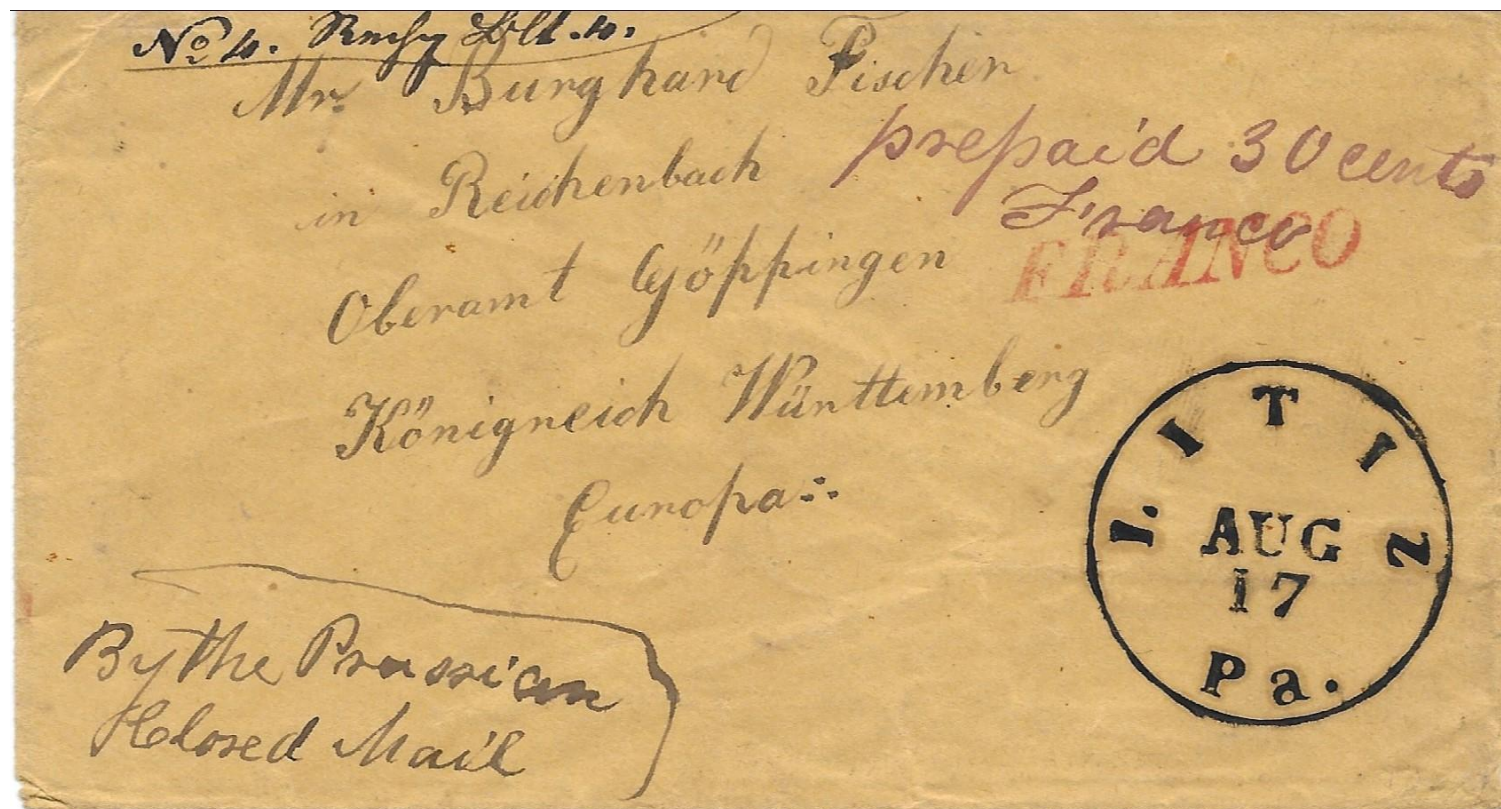 No 4.
Mr. Burghard Fischer
in Reichenbach
prepaid 30 cents
Franco
FRANCO
Oberamt Göppingen
Königreich Württemberg
Europa
LITIZ
AUG
17
Pa.
By the Prussian
Closed Mail